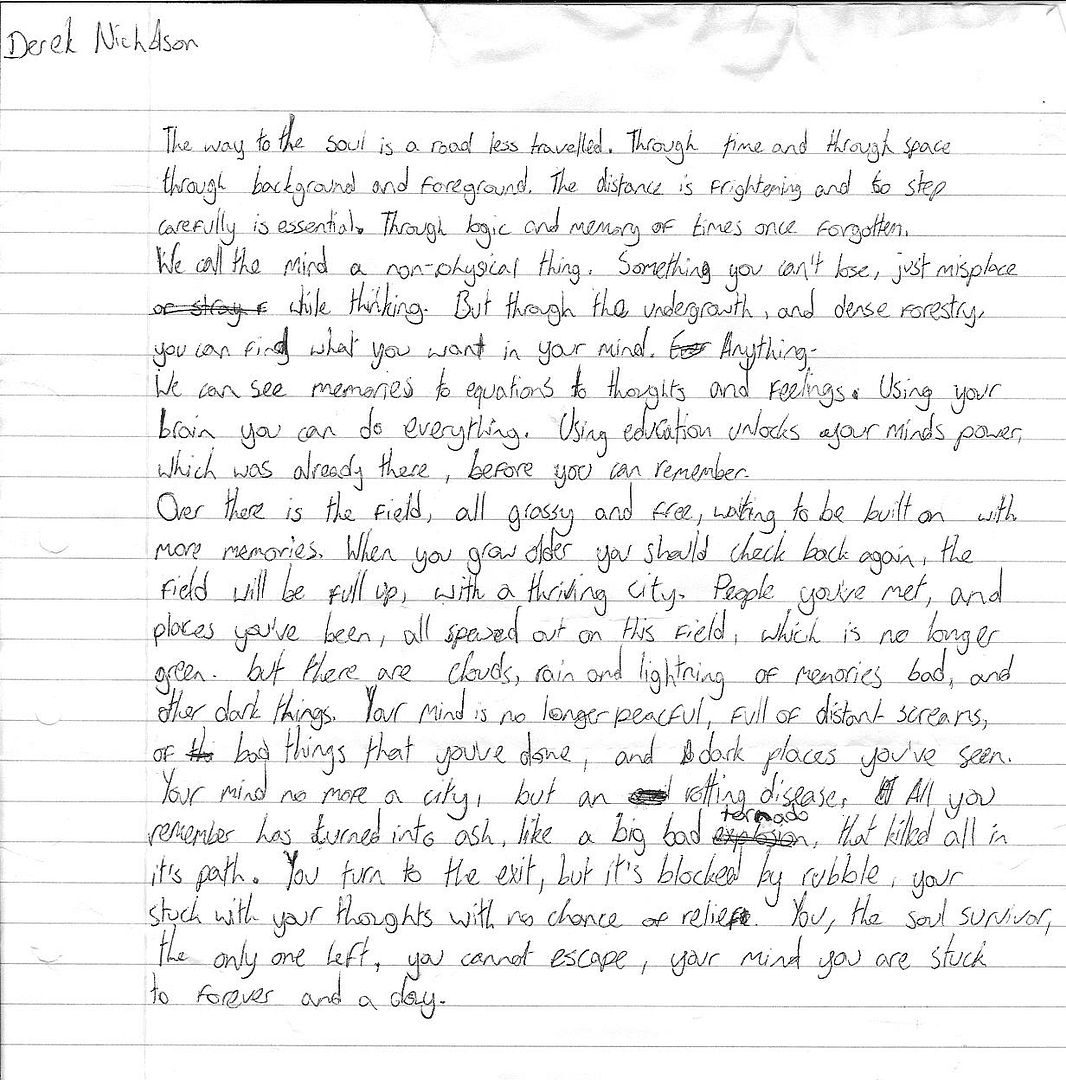 Derek Nicholson
The way to the soul is a road less travelled. Through time and through space
through background and foreground. The distance is frightening and to step
carefully is essential. Through logic and memory of times once forgotten.
We call the mind a non-physical thing. Something you can't lose, just misplace
or stray while thinking. But through the undergrowth, and dense forestry,
you can find what you want in your mind. Anything.
We can see memories to equations to thoughts and feelings. Using your
brain you can do everything. Using education unlocks your minds power,
which was already there, before you can remember.
Over there is the field, all grassy and free, waiting to be built on with
more memories. When you grow older you should check back again, the
field will be full up, with a thriving city. People you've met, and
places you've been, all spewed out on this field, which is no longer
green. but there are clouds, rain and lightning of memories bad, and
other dark things. Your mind is no longer peacful, full of distant screams,
of bad things that you've done, and dark places you've seen.
Your mind no more a city, but an rotting disease. All you
remember has turned into ash, like a big bad explosion tornado, that killed all in
it's path. You turn to the exit, but it's blocked by rubble, your
stuck with your thoughts with no chance of relief. You, the soul survivor,
the only one left, you cannot escape, your mind you are stuck
to forever and a day.